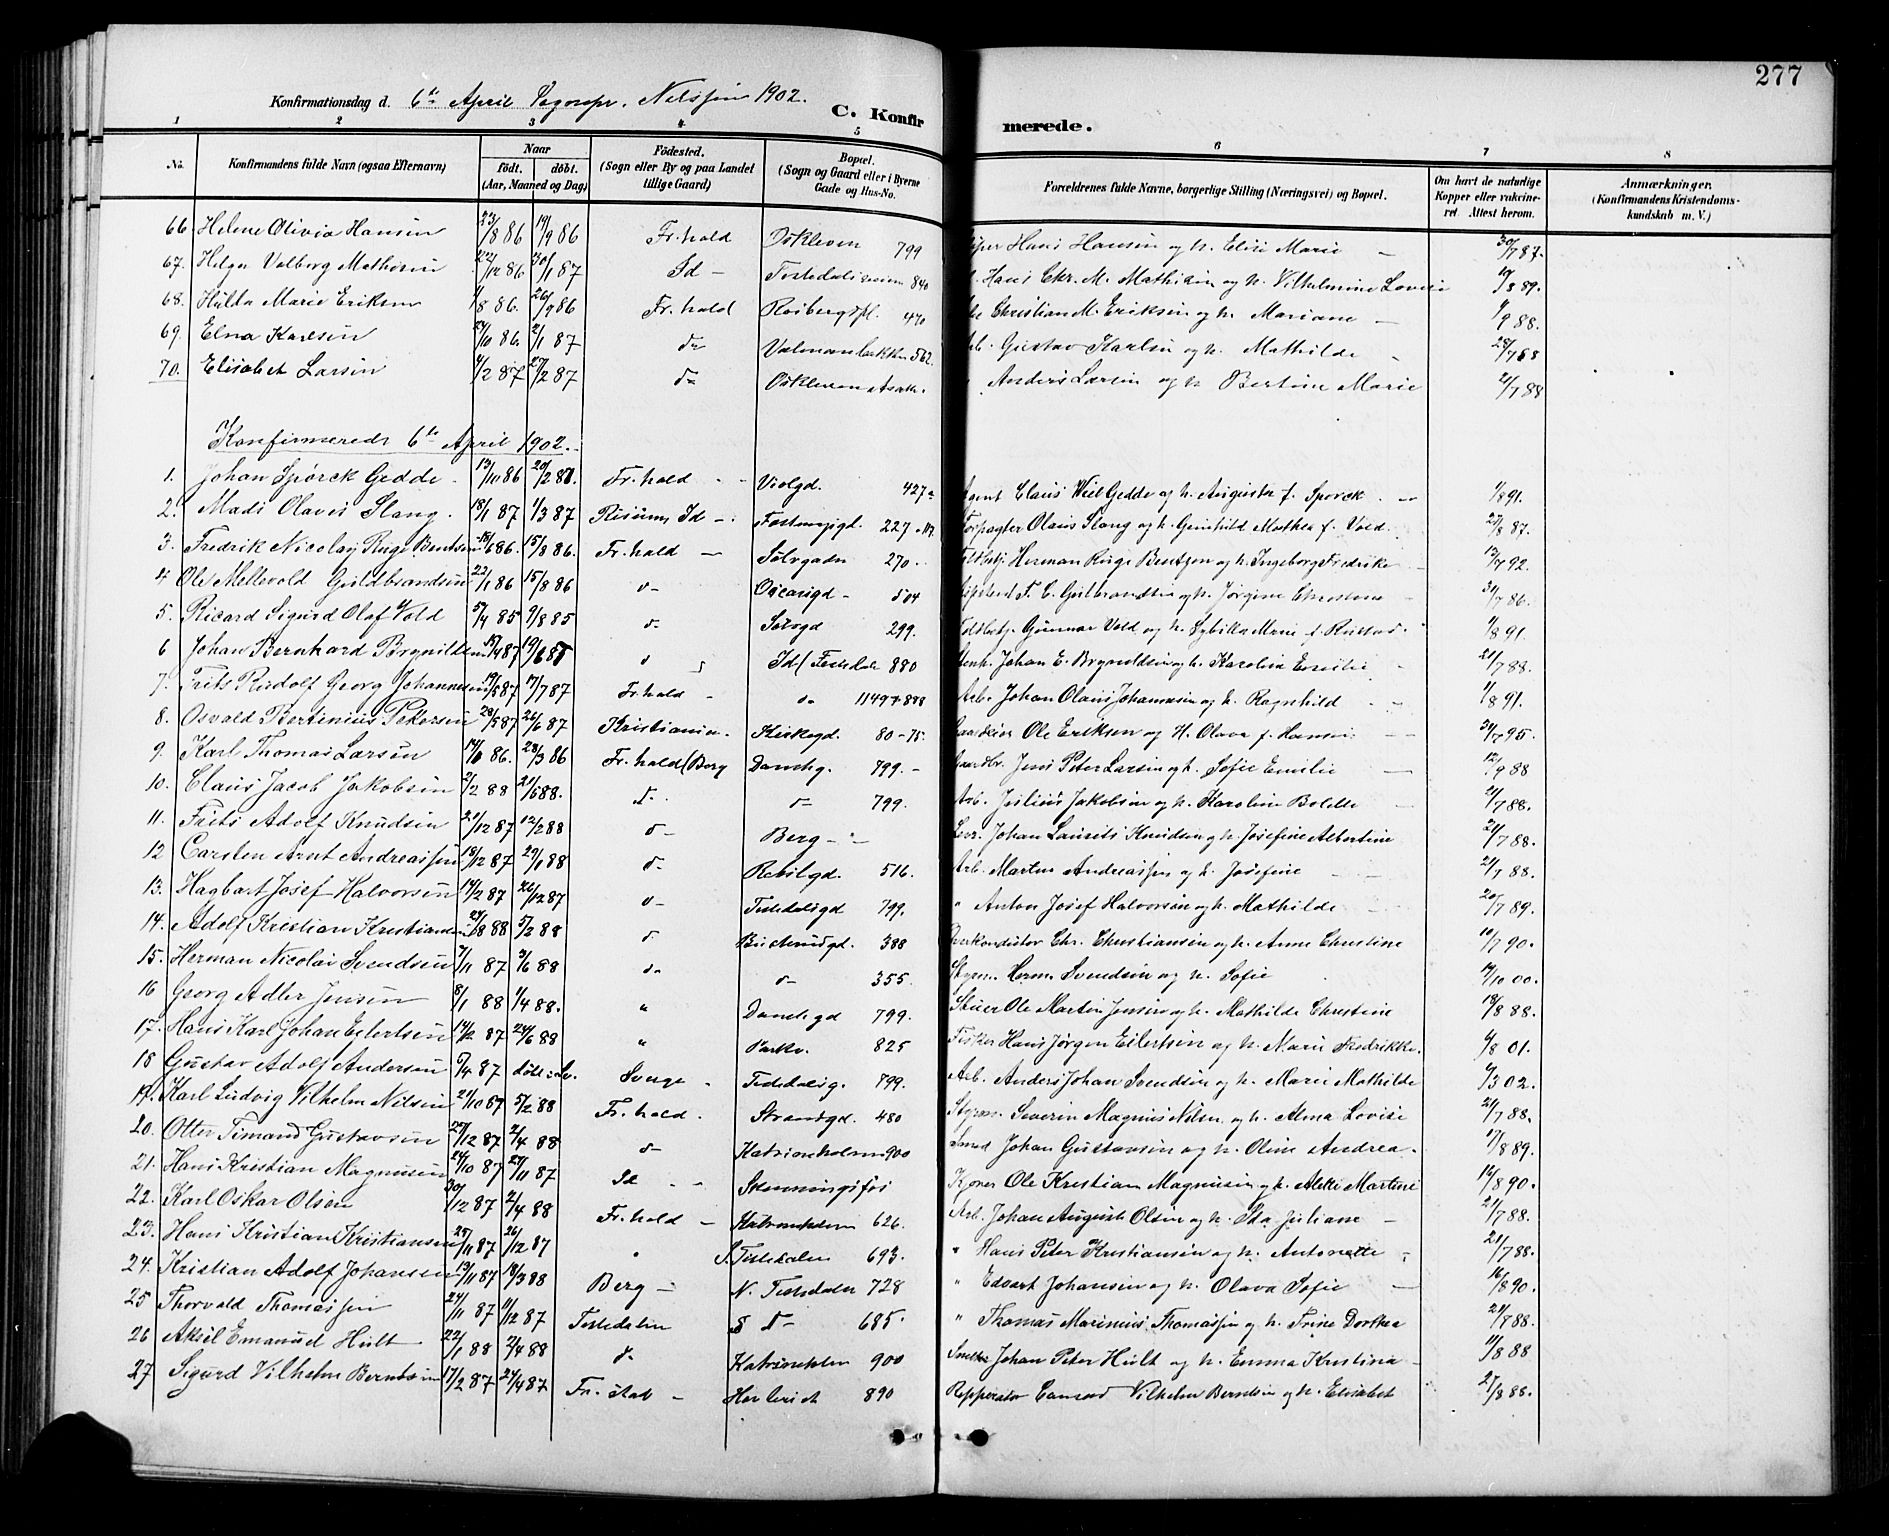 277
Konfirmationsdag d. 6te April 1902.
C. Konfirmerede.
1 2 3 4 5 6 7 8
No. Konfirmandens fulde Navn (ogsaa Efternavn) Naar födt. döbt. (Aar, Maaned og Dag) Födested. (Sogn eller By og paa Landet tillige Gaard) Bopæl. (Sogn og Gaard eller i Byerne Gade og Hus-No. Forældrenes fulde Navne, borgerlige Stilling (Næringsvei) og Bopæl. Om havt de naturlige Kopper eller vakcineret Attest herom. Anmærkninger. (Konfirmandens Kristendomskundskab m. V.)
66. Helene Olivia Hansen 23/8 86 19/9 86 Fr.hald Oskleven 799 Hans Hansen og h. Elise Marie 30/7 87.
67. Helga Valborg Mathisen 22/12 86 30/1 87 Id Tistedalsveien 840 Hans Chr. M. Mathisen og h. Vilhelmine Lovise 10/8 89.
68. Hilda Marie Eriksen 1/8 86. 26/9 86 Fr.hald Roibergspl. 470 Christian M. Eriksen og h. Mariane 1/9 88.
69. Elna Karlsen 29/10 86. 2/1 87 do 562. Gustav Karlsen og h. Mathilde 28/7 88
70. Elisabet Larsen 4/2 87 27/2 87 do Oskleven Anders Larsen og h. Bertine Marie 21/7 88
Konfirmerede 6te April 1902.
1. Johan Spørck Gedde 13/11 86 20/2 Fr.hald Violgd. 427a Agent Claus Wiel Gedde og h. Augusta f. Spørck 1/8 91.
2. Mads Olaves Stang. 18/1 87 1/3 87 Risum Id 227 Forpagter Olaus Stang og h. Gunhild Mathea f. Vold. 27/8 87.
3. Fredrik Nicolay Ruge Bentsen 18/6 86. 15/8 86. Fr.hald Sølvgaden 270. Toldbetj. Herman Ruge Bentzen og h. Ingeborg Fredrike 13/7 92.
4 Ole Mellevold Guldbrandsen 22/1 86 15/8 86 do Oscarsgd 504 F. C. Gulbrandsen og h. Jørgine Christine 31/7 86.
5. Ricard Sigurd Olaf Vold 5/4 85 9/8 85 do Sølvgd 299. Toldbetj. Gunnar Vold og h. Sybilla Marie f. Rustad. 1/8 91.
6 Johan Bernhard Brynildsen 15/4 87 19/6 87 do Id (Tistedal 880 Johan E. Brynildsen og h. Karoline Emilie 21/7 88.
7. Frits Rudolf Georg Johannesen 19/5 87 17/7 87 Fr.hald do Arb. Johan Olaus Johannesen og h. Ragnhild 1/8 91.
8. Osvald Bertinius Petersen 28/5 87 26/6 87 Kristiania Kirkegd. 80-75. Ole Eriksen og H. Olava f. Hansen 31/7 95.
9. Karl Thomas Larsen 86. 28/3 86 Fr.hald (Berg Damhg. 799. Jens Peter Larsen og h. Sofie Emilie 12/9 88
10. Claus Jacob Jakobsen 2/2 88 21/5 88. do do 799. Arb. Julius Jakobsen og h. Karoline Bolette 21/7 88.
11. Frits Adolf Knudsen 21/12 87 12/2 88 do Berg Johan Laurits Knudsen og h. Josefine Albertine 21/7 88.
12 Carsten Arnt Andreassen 18/12 87 29/1 88 do Rebslgd. 516. Arb. Martin Andreassen og h. Josefine 21/7 88.
13. Hagbart Josef Halvorsen 14/2 87 26/12 87 do Tistedalsgd 799. " Anton Josef Halvorsen og h. Mathilde 20/7 89.
14. Adolf Kristian Kristiansen 88 5/2 88 do Busterudgd. 388 Chr. Christiansen og h. Anne Christine 10/7 90.
15. Herman Nicolai Svendsen 7/11 87 3/6 88 do do 355. Styrm. Herm. Svendsen og h. Sofie 19/10 00.
16 Georg Adler Jensen 8/1 88 1/4 88. " Damhgd 799. Ole Martin Jensen og h. Mathilde Christine 18/8 88.
17. Hans Karl Johan Eilertsen 14/12 87 24/6 88 " Parkv. 825 Fisker Hans Jørgen Eilertsen og h. Marie Fredrikke. 9/8 01.
18 Gustav Adolf Andersen 5/4 87 døbt i Sv. Sverge Tistedalsg. 899. Arb. Anders Johan Svendsen og h. Marie Mathilde 9/3 02.
19. Karl Ludvig Vilhelm Nilsen 21/10 87 5/2 88 Fr.hald. Strandgd. 480 Styrm. Severin Magnus Nilsen og h. Alma Lovise 21/7 88.
20. Otter Timand Gustavsen 27/12 87 2/4 88 do Katrineholm 900 Smed Johan Gustavsen og h. Oline Andrea. 17/8 89.
21. Hans Kristian Magnusen 24/10 87 27/11 87 Id Skonningsfos Ole Kristian Magnusen og h. Alette Martine 16/8 90.
22. Karl Oskar Olsen 30/12 87 2/4 88 Fr.hald Katrineholm 626. Arb. Johan August Olsen og h. Ida Juliane 21/7 88.
23. Hans Kristian Kristiansen 25/11 87 26/12 87 " S. Tistedalen 693. " Hans Peter Kristiansen og h. Antonette 21/7 88.
24. Kristian Adolf Johansen 13/11 87 18/3 88 Berg N. Tistedalen 728 " Edvart Johansen og h. Olava Sofie 16/8 90.
25 Thorvald Thomassen 24/11 87 11/12 87 Tistedalen S do 685. " Thomas Marinius Thomassen og h. Trine Dorthea 21/8 88.
26 Aksel Emanuel Hult 22/1 88 2/4 88 do Katrineholm 900 Johan Peter Hult og h. Emma Kristina 11/8 88
27 Sigurd Vilhelm Berntsen 17/2 87 24/4 87 Fr.stad 890 Vilhelm Berntsen og h. Elisabet 27/8 88.